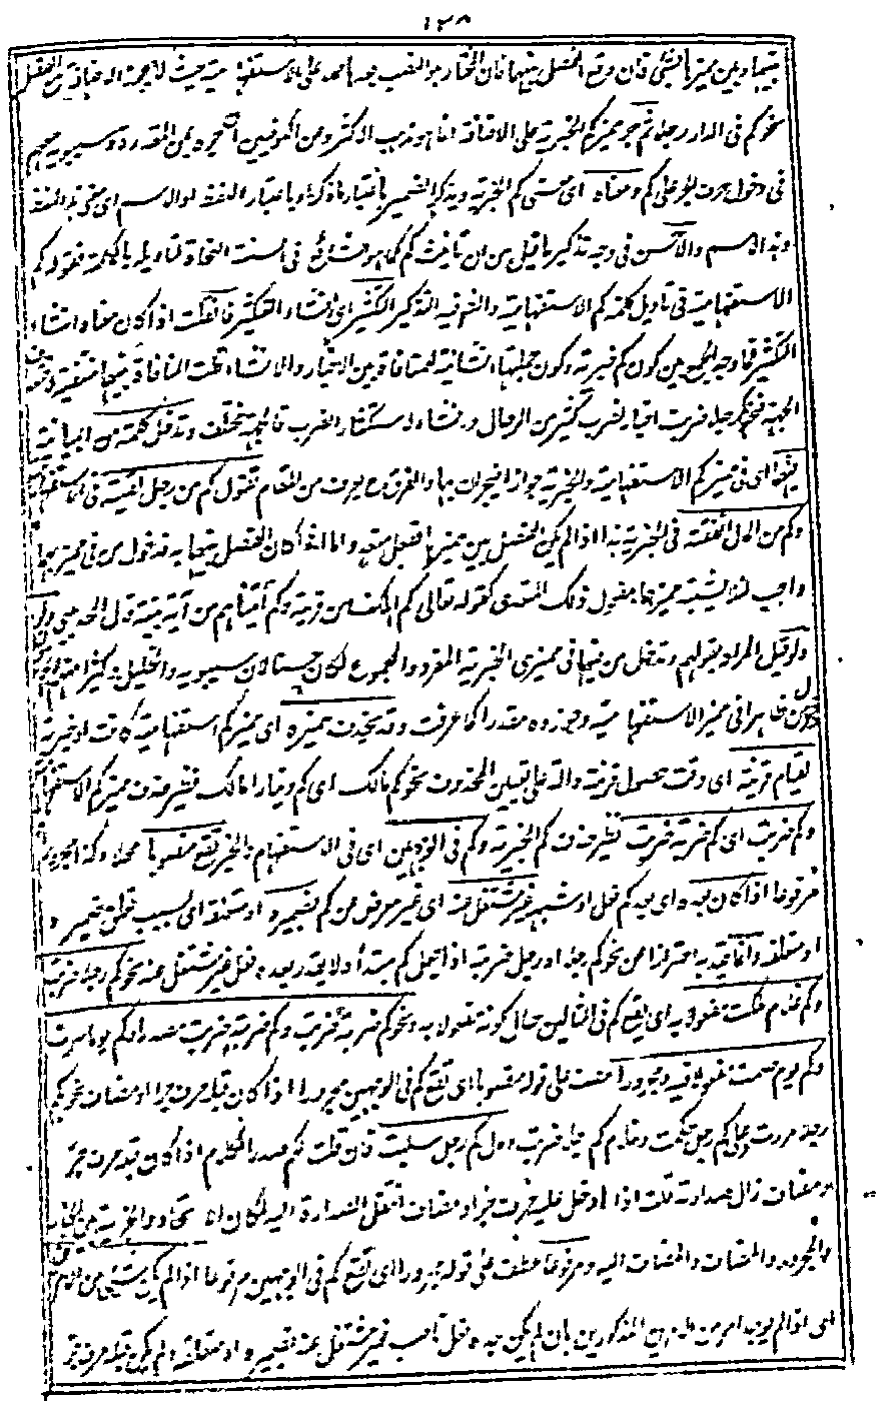 ١٢٨
بينها وبين مميزها بشئ فان وقع الفصل بينهما فان المختار هو النصب بعد الحمل على الاستفهامية حيث لا يمكن الاضافة مع الفصل
نحو كم فى الدار رجلا ثم جر مميزكم الخبرية على الاضافة انما هو مذهب الاكثر ومن الكوفيين انه مجرور بمن المقدرة وسيبويه معهم
فى دخول حرف الجر على كم ومعناه اى معنى كم الخبرية وتذكير الضمير باعتبار ما ذكر او باعتبار اللفظ او الاسم اى معنى هذا اللفظ
وهذا الاسم والاحسن فى وجه تذكير ما قيل من ان تانيث كم كما هو شائع فى السنة النحاة لتاويله بالكلمة فقولهم كم
الاستفهامية فى تاويل كلمة كم الاستفهامية والغرض فيه التذكير التكثير اى انشاء التكثير فان قلت اذا كان معناه انشاء
التكثير فما وجه الجمع بين كون كم خبرية وكون جملتها انشائية لمنافاة بين الاخبار والانشاء قلت المنافاة بينهما منتفية
الجهة فنحو كم رجل ضربت اخبار بضرب كثير من الرجال وانشاء لاستكثار الضرب فالجهة مختلفة وتدخل كلمة من البيانية
فيهما اى فى مميز كم الاستفهامية والخبرية جوازا فيجران بها والفرق ح يعرف من المقام تقول كم من رجل لقيته فى الاستفهامية
وكم من المال انفقته فى الخبرية هذا اذا لم يكن الفصل بين مميزها بفعل متعد واما اذا كان الفصل بينهما به فدخول من فى مميزها
واجب لئلا يشتبه مميزها بمفعول ذلك المتعدى كقوله تعالى كم اهلكنا من قرية وكم آتيناهم من آية بينة قال
ولو قيل المراد بقولهم وتدخل من فيهما فى مميزى الخبرية المفرد والمجموع لكان حسنا لان سيبويه والخليل وكثيرا
ظاهرا فى مميز الاستفهامية وجوزوه مقدرا كما عرفت وقد يحذف مميزه اى مميز كم استفهامية كانت او خبرية
لقيام قرينة اى وقت حصول قرينة دالة على تعيين المحذوف نحو كم مالك اى كم دينارا مالك نظير حذف مميزكم الاستفهامية
وكم ضربت اى كم ضربة ضربت نظير حذف كم الخبرية وكم فى الوجهين اى فى الاستفهام والخبر تقع منصوبا محلا وكذا مجرورا
مرفوعا اذا كان بعده اى بعد كم فعل او شبهه غير مشتغل عنه اى غير معرض عن كم بضميره او متعلقه اى بسبب عمله فى ضميره
او متعلقه وانما قيد به احترازا من نحو كم رجلا او رجل ضربته اذا جعل كم مبتدأ ولا يقدر بعده فعل غير مشتغل عنه نحو كم رجلا ضربت
وكم غلام ملكت مفعولا به اى يقع كم فى المثالين حال كونه مفعولا به ونحو كم ضربة ضربت وكم ضربة ضربت مصدرا وكم يوما سرت
وكم يوم صمت مفعولا فيه ومجرورا عطف على قوله منصوبا اى تقع كم فى الوجهين مجرورا اذا كان قبله حرف جر او مضاف نحو بكم
رجلا مررت وعلى كم رجل حكمت وغلام كم رجلا ضربت ومال كم رجل سلبت فان قلت لكم صدر الكلام اذا كان قبله حرف جر
او مضاف زال صدارته قلت اذا دخل عليه حرف جر او مضاف انتقل الصدارة اليه لمكان الاتحاد والجزئية بين الجار
والمجرور والمضاف والمضاف اليه ومرفوعا عطف على قوله مجرورا اى تقع كم فى الوجهين مرفوعا اذا لم يكن شئ من الامرين
اى اذا لم يوجد امر من الامرين المذكورين بان لم يكن بعده فعل ناصب غير مشتغل عنه بضميره او متعلقه ولم يكن قبله حرف جر